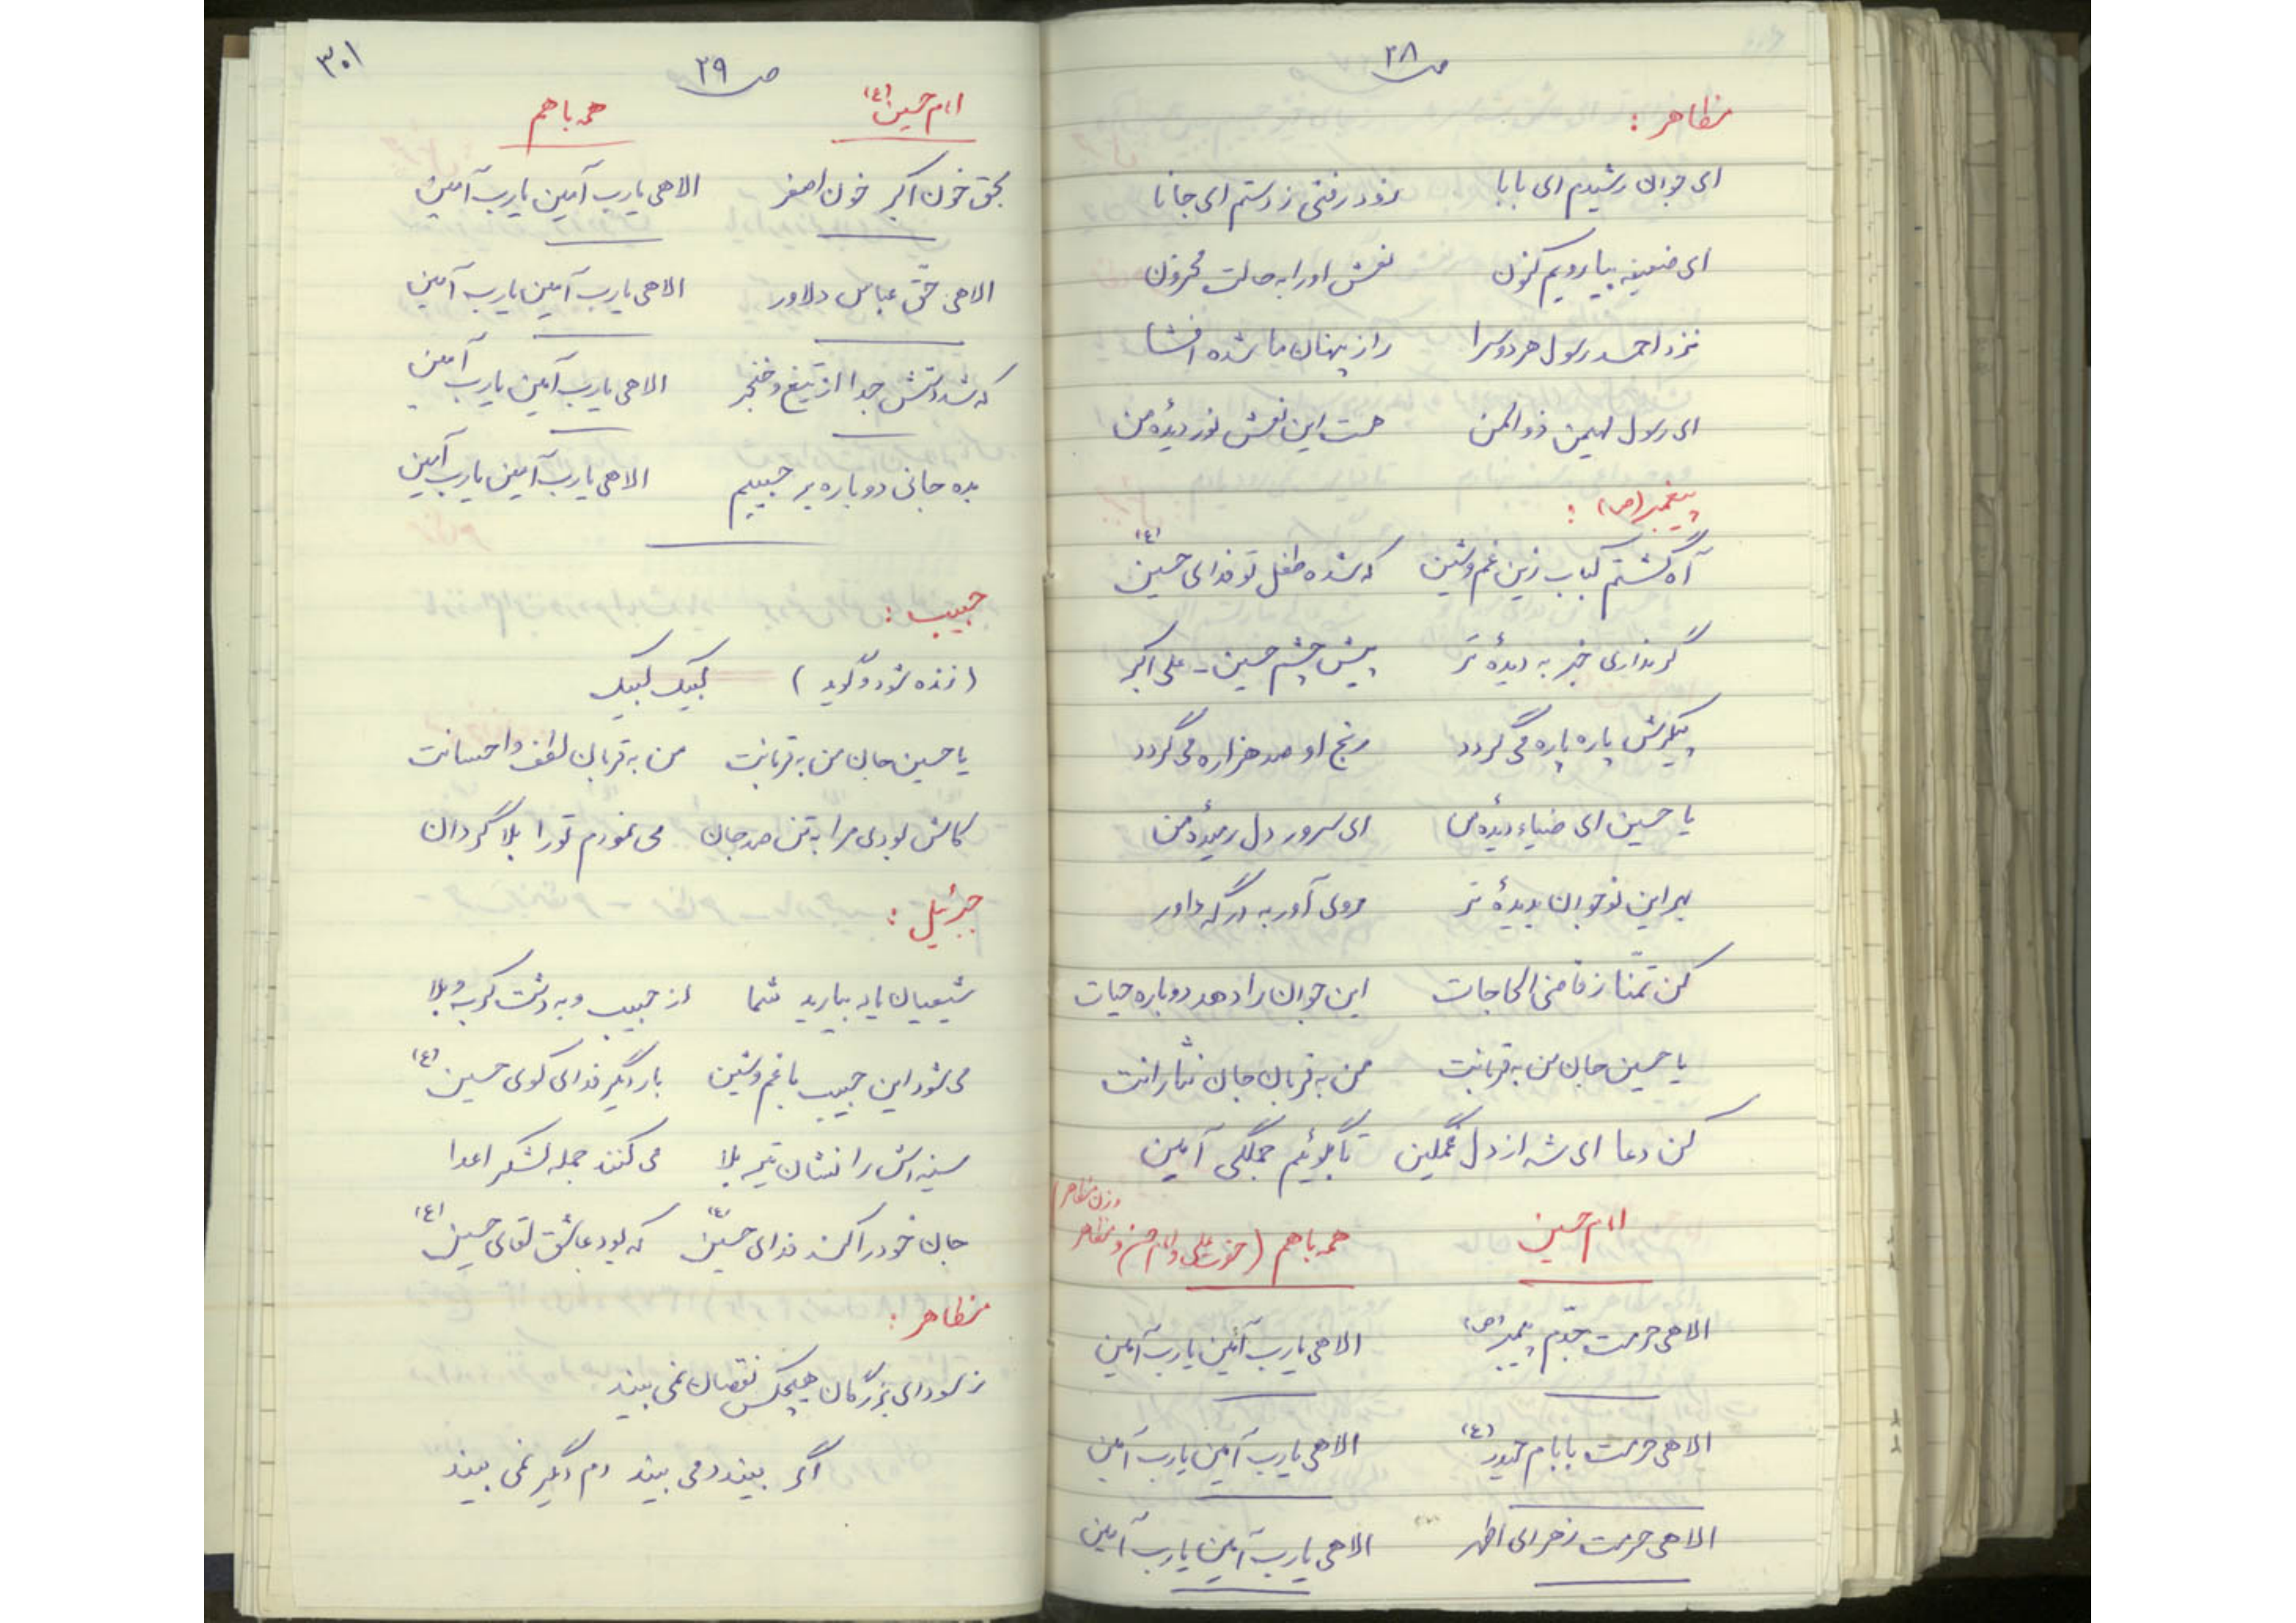 ص ۲۸
مظاهر :
ای جوان رشیدم ای بابا زود رفتی ز دستم ای جانا
ای ضعیفه بیا رویم کنون نعش او را به حالت محزون
نزد احمد رسول هر دو سرا راز پنهان ما شده افشا
ای رسول مهیمن ذوالمن هست این نعش نور دیدهٔ من
پیغمبر (ص) :
آه گشتم کباب زین غم و شین که شده طفل تو فدای حسین (ع)
گر نداری خبر به دیدهٔ تر پیش چشم حسین - علی اکبر
پیکرش پاره پاره می گردد رنج او صد هزاره می گردد
یا حسین ای ضیاء دیدهٔ من ای سرور دل رمیدهٔ من
بهر این نوجوان بدیدهٔ تر روی آور به درگه داور
کن تمنّا ز قاضی الحاجات این جوان را دهد دوباره حیات
یا حسین جان من به قربانت من به قربان جان نثارانت
کن دعا ای شه از دل غمگین تا بگوئیم جملگی آمین
امام حسین همه با هم (حضرت علی و امام حسن و مظاهر وزن مظاهر)
الاهی حرمت جدّم پیمبر (ص) الاهی یارب آمین یارب آمین
الاهی حرمت بابام حیدر (ع) الاهی یارب آمین یارب آمین
الاهی حرمت زهرای اطهر الاهی یارب آمین یارب آمین
ص ۲۹
۳۰۱
امام حسین (ع) همه با هم
بحق خون اکبر خون اصغر الاهی یارب آمین یارب آمین
الاهی حقّ عباس دلاور الاهی یارب آمین یارب آمین
که شد دستش جدا از تیغ و خنجر الاهی یارب آمین یارب آمین
بده جانی دوباره بر حبیبم الاهی یارب آمین یارب آمین
حبیب :
(زنده شود و گوید) لبیک لبیک
یا حسین جان من به قربانت من به قربان لطف و احسانت
کاش بودی مرا به تن صد جان می نمودم تو را بلا گردان
جبرئیل :
شیعیان یاد بیارید شما از حبیب و به دشت کرب و بلا
می شود این حبیب با غم و شین بار دیگر فدای کوی حسین (ع)
سینه اش را نشان تیر بلا می کنند جمله لشکر اعدا
جان خود را کند فدای حسین (ع) که بود عاشق لقای حسین (ع)
مظاهر :
ز سودای بزرگان هیچکس نقصان نمی بیند
اگر بیند دمی بیند دم دیگر نمی بیند